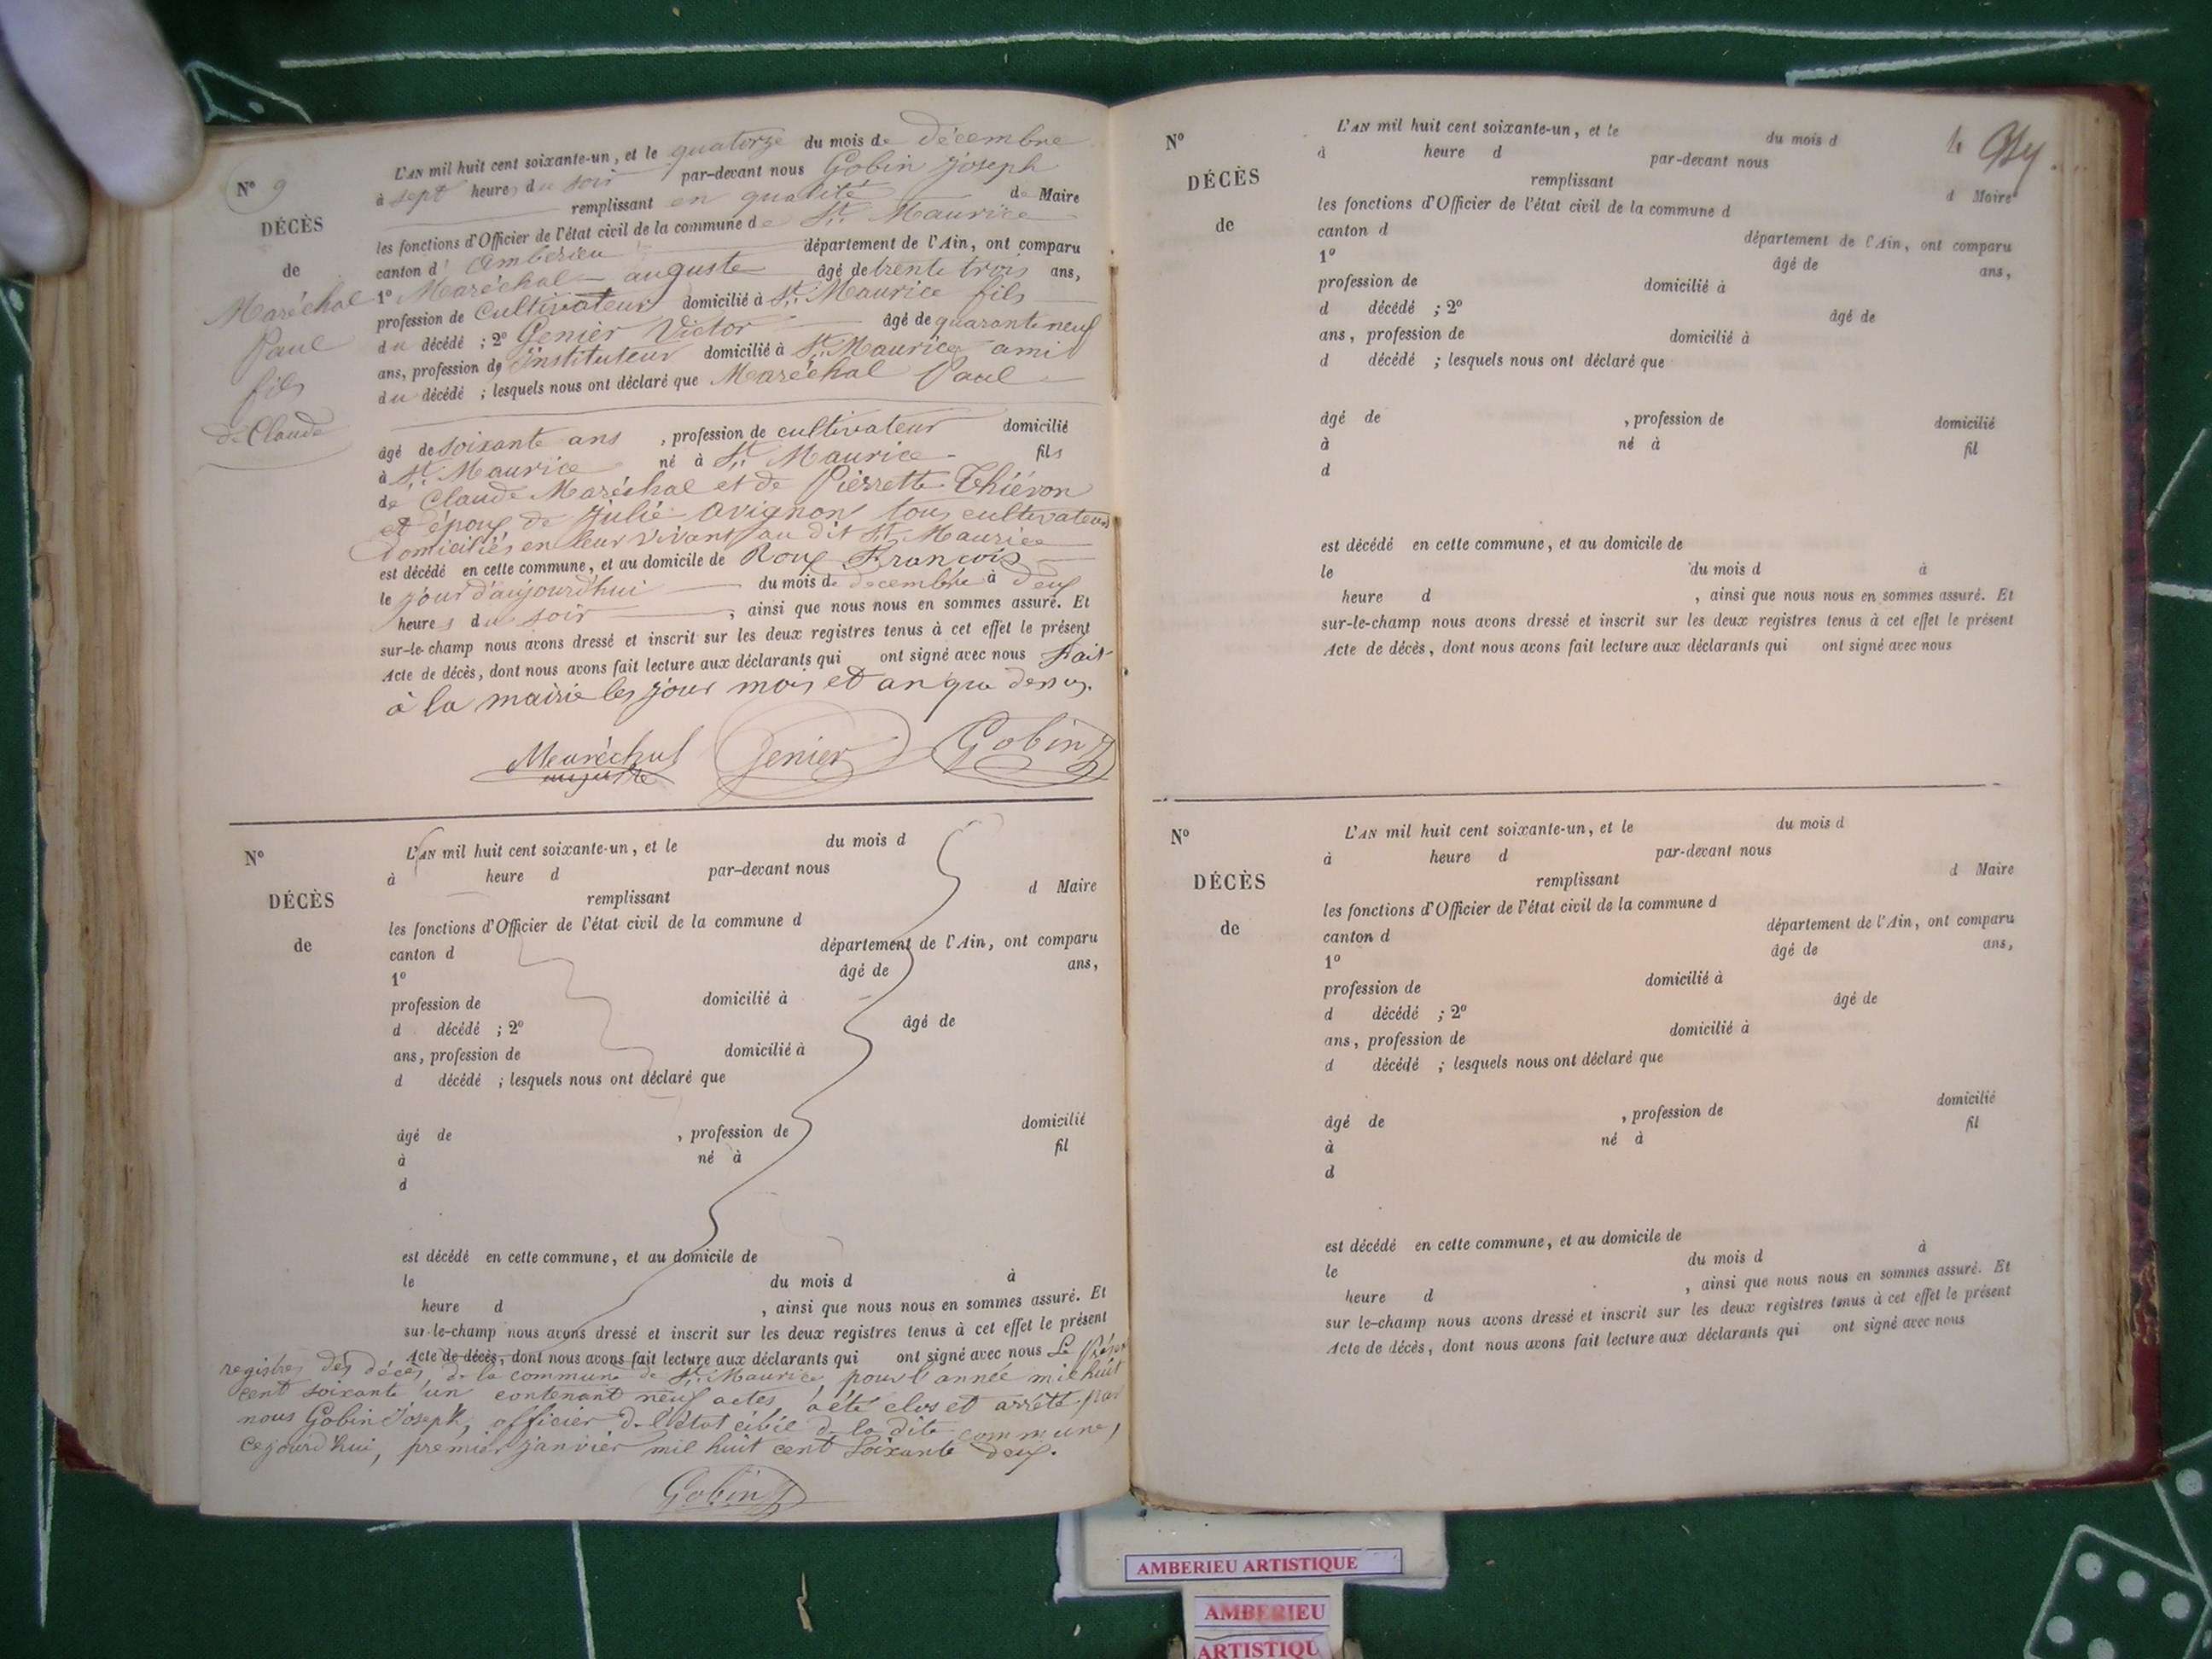 N° 9
DÉCÈS
de
Maréchal
Paul
fils
de Claude
L'AN mil huit cent soixante-un, et le quatorze du mois de décembre
à sept heures du soir par-devant nous Gobin Joseph
remplissant en qualité de Maire
les fonctions d'Officier de l'état civil de la commune de St. Maurice
canton d' Ambérieu département de l'Ain, ont comparu
1° Maréchal auguste âgé de trente trois ans,
profession de Cultivateur domicilié à St. Maurice fils
du décédé ; 2° Genier Victor âgé de quarante neuf
ans, profession de instituteur domicilié à St. Maurice ami
du décédé ; lesquels nous ont déclaré que Maréchal Paul
âgé de soixante ans , profession de cultivateur domicilié
à St. Maurice né à St. Maurice fils
de Claude Maréchal et de Pierrette Thiévon
et époux de Julie Avignon tous cultivateurs
domiciliés en leur vivant au dit St. Maurice
est décédé en cette commune, et au domicile de Roux François
le jour d'aujourd'hui du mois de decembre à deux
heures du soir , ainsi que nous nous en sommes assuré. Et
sur-le-champ nous avons dressé et inscrit sur les deux registres tenus à cet effet le présent
Acte de décès, dont nous avons fait lecture aux déclarants qui ont signé avec nous Fait
à la mairie les jour mois et an que dessus.
Maréchal auguste Genier Gobin J
N°
DÉCÈS
de
L'AN mil huit cent soixante-un, et le du mois d
à heure d par-devant nous
remplissant d Maire
les fonctions d'Officier de l'état civil de la commune d
canton d département de l'Ain, ont comparu
1° âgé de ans,
profession de domicilié à
d décédé ; 2° âgé de
ans, profession de domicilié à
d décédé ; lesquels nous ont déclaré que
âgé de , profession de domicilié
à né à fil
d
est décédé en cette commune, et au domicile de
le du mois d à
heure d , ainsi que nous nous en sommes assuré. Et
sur-le-champ nous avons dressé et inscrit sur les deux registres tenus à cet effet le présent
Acte de décès, dont nous avons fait lecture aux déclarants qui ont signé avec nous Le
registre des décès de la commune de St. Maurice, pour l'année mil huit
cent soixante un contenant neuf actes, a été clos et arrêté par
nous Gobin Joseph, officier de l'état civil de la dite commune,
cejourd'hui, premier janvier mil huit cent soixante deux.
Gobin J
N°
DÉCÈS
de
L'AN mil huit cent soixante-un, et le du mois d
à heure d par-devant nous
remplissant d Maire
les fonctions d'Officier de l'état civil de la commune d
canton d département de l'Ain, ont comparu
1° âgé de ans,
profession de domicilié à
d décédé ; 2° âgé de
ans, profession de domicilié à
d décédé ; lesquels nous ont déclaré que
âgé de , profession de domicilié
à né à fil
d
est décédé en cette commune, et au domicile de
le du mois d à
heure d , ainsi que nous nous en sommes assuré. Et
sur-le-champ nous avons dressé et inscrit sur les deux registres tenus à cet effet le présent
Acte de décès, dont nous avons fait lecture aux déclarants qui ont signé avec nous
N°
DÉCÈS
de
L'AN mil huit cent soixante-un, et le du mois d
à heure d par-devant nous
remplissant d Maire
les fonctions d'Officier de l'état civil de la commune d
canton d département de l'Ain, ont comparu
1° âgé de ans,
profession de domicilié à
d décédé ; 2° âgé de
ans, profession de domicilié à
d décédé ; lesquels nous ont déclaré que
âgé de , profession de domicilié
à né à fil
d
est décédé en cette commune, et au domicile de
le du mois d à
heure d , ainsi que nous nous en sommes assuré. Et
sur le-champ nous avons dressé et inscrit sur les deux registres tenus à cet effet le présent
Acte de décès, dont nous avons fait lecture aux déclarants qui ont signé avec nous
AMBERIEU ARTISTIQUE
AMBERIEU
ARTISTIQU